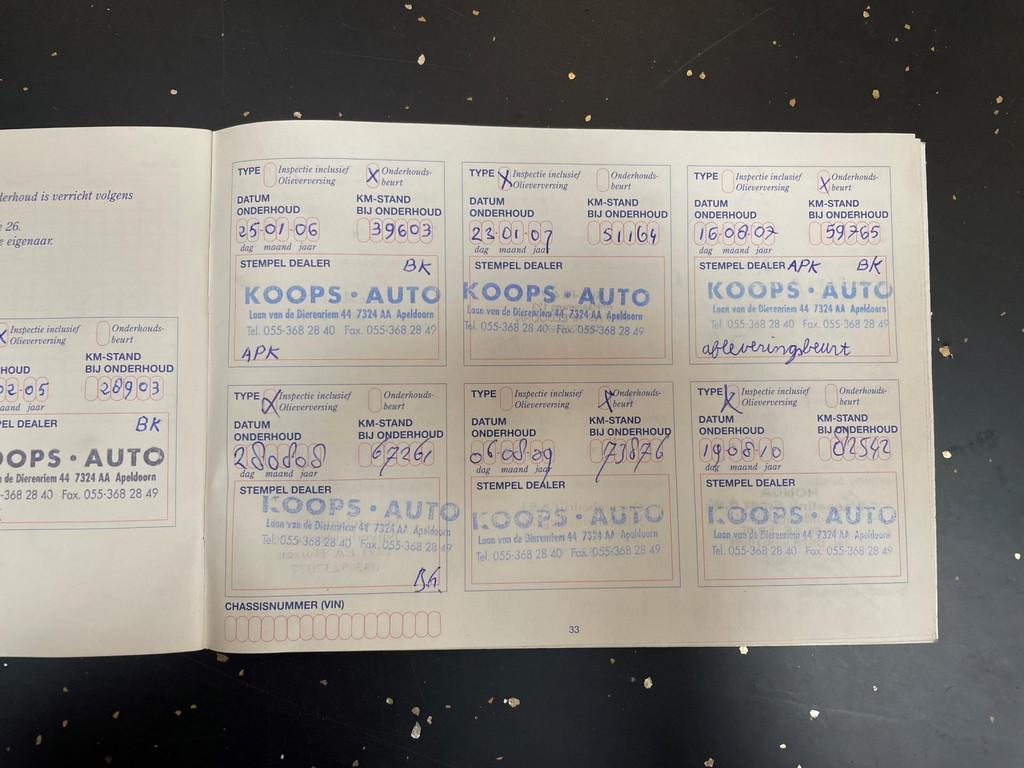 derhoud is verricht volgens
26.
e eigenaar.
Inspectie inclusief
Olieverversing
Onderhouds-
beurt
HOUD
KM-STAND
BIJ ONDERHOUD
02-05
28903
aand jaar
PEL DEALER BK
OOPS · AUTO
n de Dierenriem 44 7324 AA Apeldoorn
-368 28 40 Fax. 055-368 28 49
TYPE Inspectie inclusief
Olieverversing
X Onderhouds-
beurt
DATUM
ONDERHOUD
KM-STAND
BIJ ONDERHOUD
25-01-06
39603
dag maand jaar
STEMPEL DEALER BK
KOOPS · AUTO
Laan van de Dierenriem 44 7324 AA Apeldoorn
Tel. 055-368 28 40 Fax. 055-368 28 49
APK
TYPE X Inspectie inclusief
Olieverversing
Onderhouds-
beurt
DATUM
ONDERHOUD
KM-STAND
BIJ ONDERHOUD
23-01-07
51164
dag maand jaar
STEMPEL DEALER
KOOPS · AUTO
Laan van de Dierenriem 44 7324 AA Apeldoorn
Tel. 055-368 28 40 Fax. 055-368 28 49
TYPE Inspectie inclusief
Olieverversing
X Onderhouds-
beurt
DATUM
ONDERHOUD
KM-STAND
BIJ ONDERHOUD
16-08-07
59765
dag maand jaar
STEMPEL DEALER APK BK
KOOPS · AUTO
Laan van de Dierenriem 44 7324 AA Apeldoorn
Tel. 055-368 28 40 Fax. 055-368 28 49
afleveringsbeurt
TYPE X Inspectie inclusief
Olieverversing
Onderhouds-
beurt
DATUM
ONDERHOUD
KM-STAND
BIJ ONDERHOUD
280808
67261
dag maand jaar
STEMPEL DEALER
KOOPS · AUTO
Laan van de Dierenriem 44 7324 AA Apeldoorn
Tel. 055-368 28 40 Fax. 055-368 28 49
BK.
TYPE Inspectie inclusief
Olieverversing
X Onderhouds-
beurt
DATUM
ONDERHOUD
KM-STAND
BIJ ONDERHOUD
06-08-09
73876
dag maand jaar
STEMPEL DEALER
KOOPS · AUTO
Laan van de Dierenriem 44 7324 AA Apeldoorn
Tel. 055-368 28 40 Fax. 055-368 28 49
TYPE X Inspectie inclusief
Olieverversing
Onderhouds-
beurt
DATUM
ONDERHOUD
KM-STAND
BIJ ONDERHOUD
19-08-10
82542
dag maand jaar
STEMPEL DEALER
KOOPS · AUTO
Laan van de Dierenriem 44 7324 AA Apeldoorn
Tel. 055-368 28 40 Fax. 055-368 28 49
CHASSISNUMMER (VIN)
33